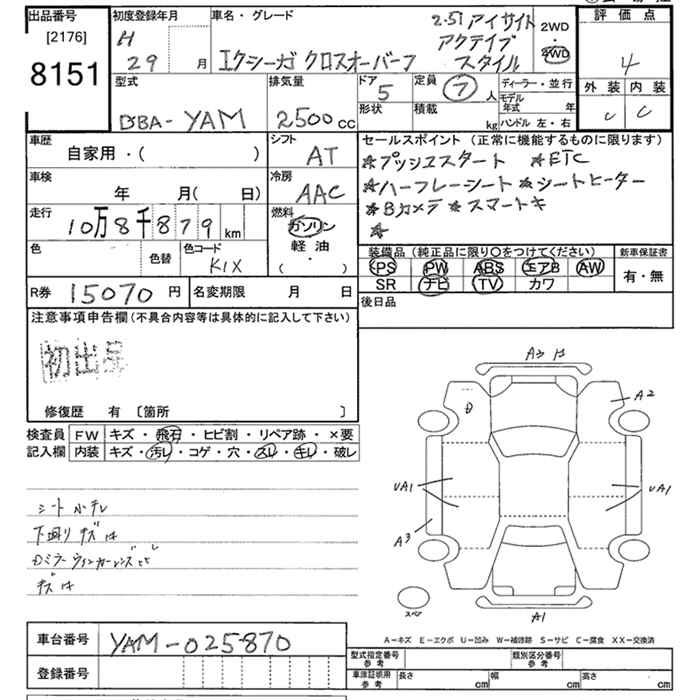 出品番号
[2176]
8151
初度登録年月
H
29 月
車名・グレード
2.5i アイサイト
アクティブ
スタイル
エクシーガ クロスオーバー7
2WD
4WD
評価点
4
外装 内装
C
型式
DBA-YAM
排気量
2500cc
ドア
5
形状
定員
7人
積載
kg
ディーラー・並行
モデル年式 年
ハンドル 左・右
車歴
自家用・( )
シフト
AT
車検
年 月( 日)
冷房
AAC
走行
10万8千879km
燃料
ガソリン
軽油
( ・ )
色
色替
色コード
K1X
セールスポイント (正常に機能するものに限ります)
☆プッシュスタート ☆ETC
☆ハーフレーシート☆シートヒーター
☆Bカメラ☆スマートキ
☆
装備品(純正品に限り○をつけてください)
PS PW ABS エアB AW
SR ナビ TV カワ
新車保証書
有・無
R券 15070円
名変期限 月 日
後日品
注意事項申告欄(不具合内容等は具体的に記入して下さい)
初出品
修復歴 有 〔箇所 〕
検査員
記入欄
FW キズ・飛石・ヒビ割・リペア跡・×要
内装 キズ・汚レ・コゲ・穴・スレ・キレ・破レ
下廻りキズ
キズ
A2
UA1
UA1
A3
スペア
A1
A-キズ E-エクボ U-凹み W-補修跡 S-サビ C-腐食 XX-交換済
車台番号 YAM-025870
登録番号
型式指定番号
参考
類別区分番号
参考
車庫証明用
参考
長さ cm 幅 cm 高さ cm